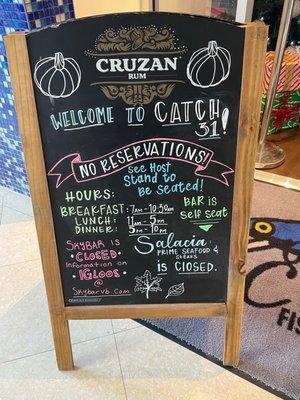 CRUZAN
RUM
WELCOME TO CATCH
31!
NO RESERVATIONS!
SEE HOST
STAND TO
BE SEATED!
HOURS:
BREAKFAST: 7AM - 10:30AM
LUNCH: 11AM - 5PM
DINNER: 5PM - 10PM
BAR IS
SELF SEAT
SKYBAR IS
CLOSED
INFORMATION ON
IGLOOS
@
SKYBARVB.COM
SALACIA
PRIME SEAFOOD &
STEAKS
IS CLOSED.
FISH